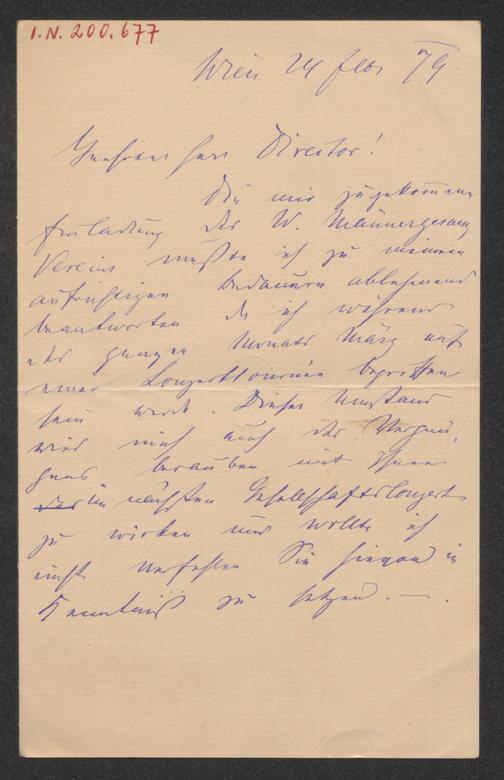 I.N. 200.677
Wien 24 Febr 79
Geehrter Herr Director!
Die mir zugekommene
Einladung des W. Männergesang
Vereins mußte ich zu meinem
aufrichtigen Bedauern ablehnend
beantworten da ich während
des ganzen Monats März auf
einer Konzerttournée begriffen
sein werde. Dieser Umstand
wird mich auch des Vergnü-
gens berauben mit Ihnen
im nächsten Gesellschaftskonzert
zu wirken und wollte ich
nicht verfehlen Sie hievon in
Kenntniß zu setzen. — .